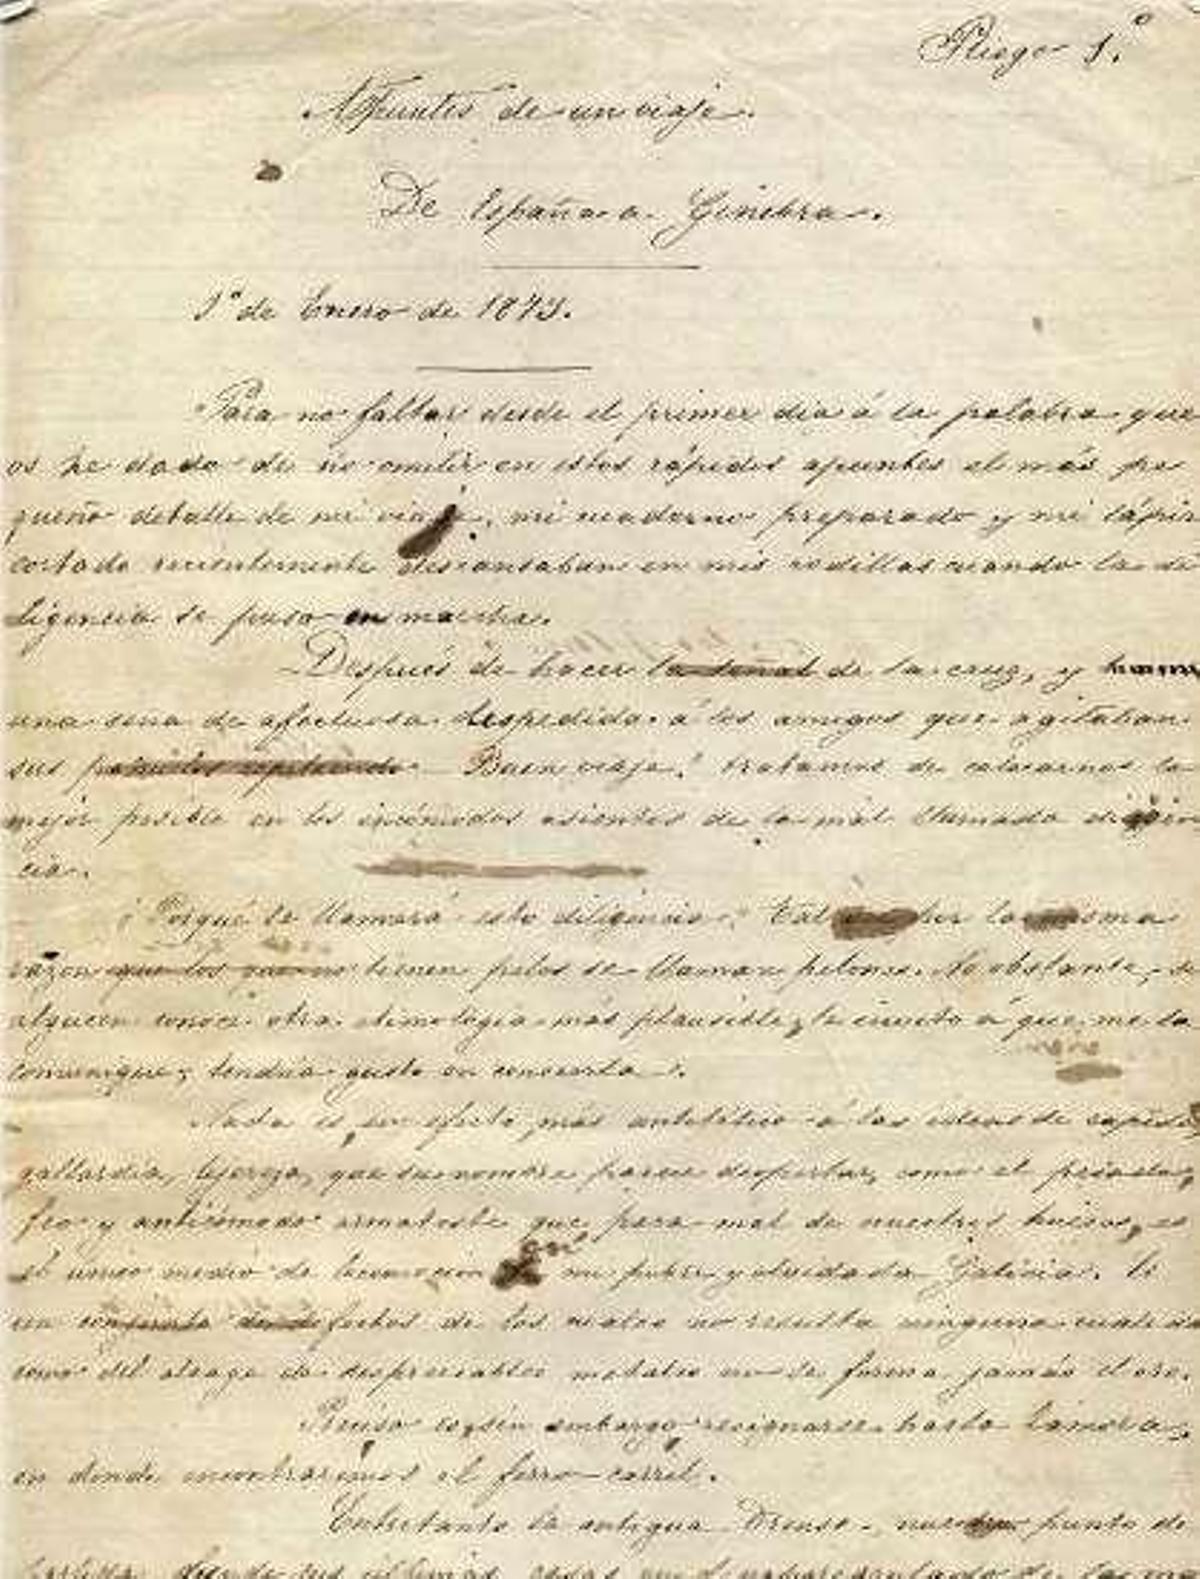 Pliego 1.º
Apuntes de un viaje.
De España a Ginebra.
1º de Enero de 1873.
Para no faltar desde el primer dia á la palabra que
os he dado de no omitir en estos rápidos apuntes el más pe
queño detalle de mi viaje, mi cuaderno preparado y mi lápiz
cortado recientemente descansaban en mis rodillas cuando la di
ligencia se puso en marcha.
Despues de hacer la señal de la cruz, y
una seña de afectuosa despedida á los amigos que agitaban
sus pañuelos repitiendo Buen viaje! tratamos de colocarnos lo
mejor posible en los incómodos asientos de la mal llamada diligen
cia.
¿Porqué se llamará esto diligencia? Tal por la misma
razon que los que no tienen pelos se llaman pelones. No obstante, si
alguien conoce otra etimología más plausible, le invito á que me la
comunique; tendria gusto en conocerla.
Nada es, en efecto, más antitético á las ideas de rapidez,
gallardia, lijereza, que su nombre parece despertar, como el pesado,
feo y anticómodo armatoste que para mal de nuestros huesos, es
el único medio de locomocion en mi pobre y olvidada Galicia. De
un conjunto de defectos de los cuales no resulta ninguna cualida
como del de despreciables metales no se forma jamás el oro.
Preciso es, sin embargo, resignarse hasta Zamora,
en donde encontraremos el ferro-carril.
Entretanto la antigua Orense, nuestro punto de
partida, desde sus últimas casas